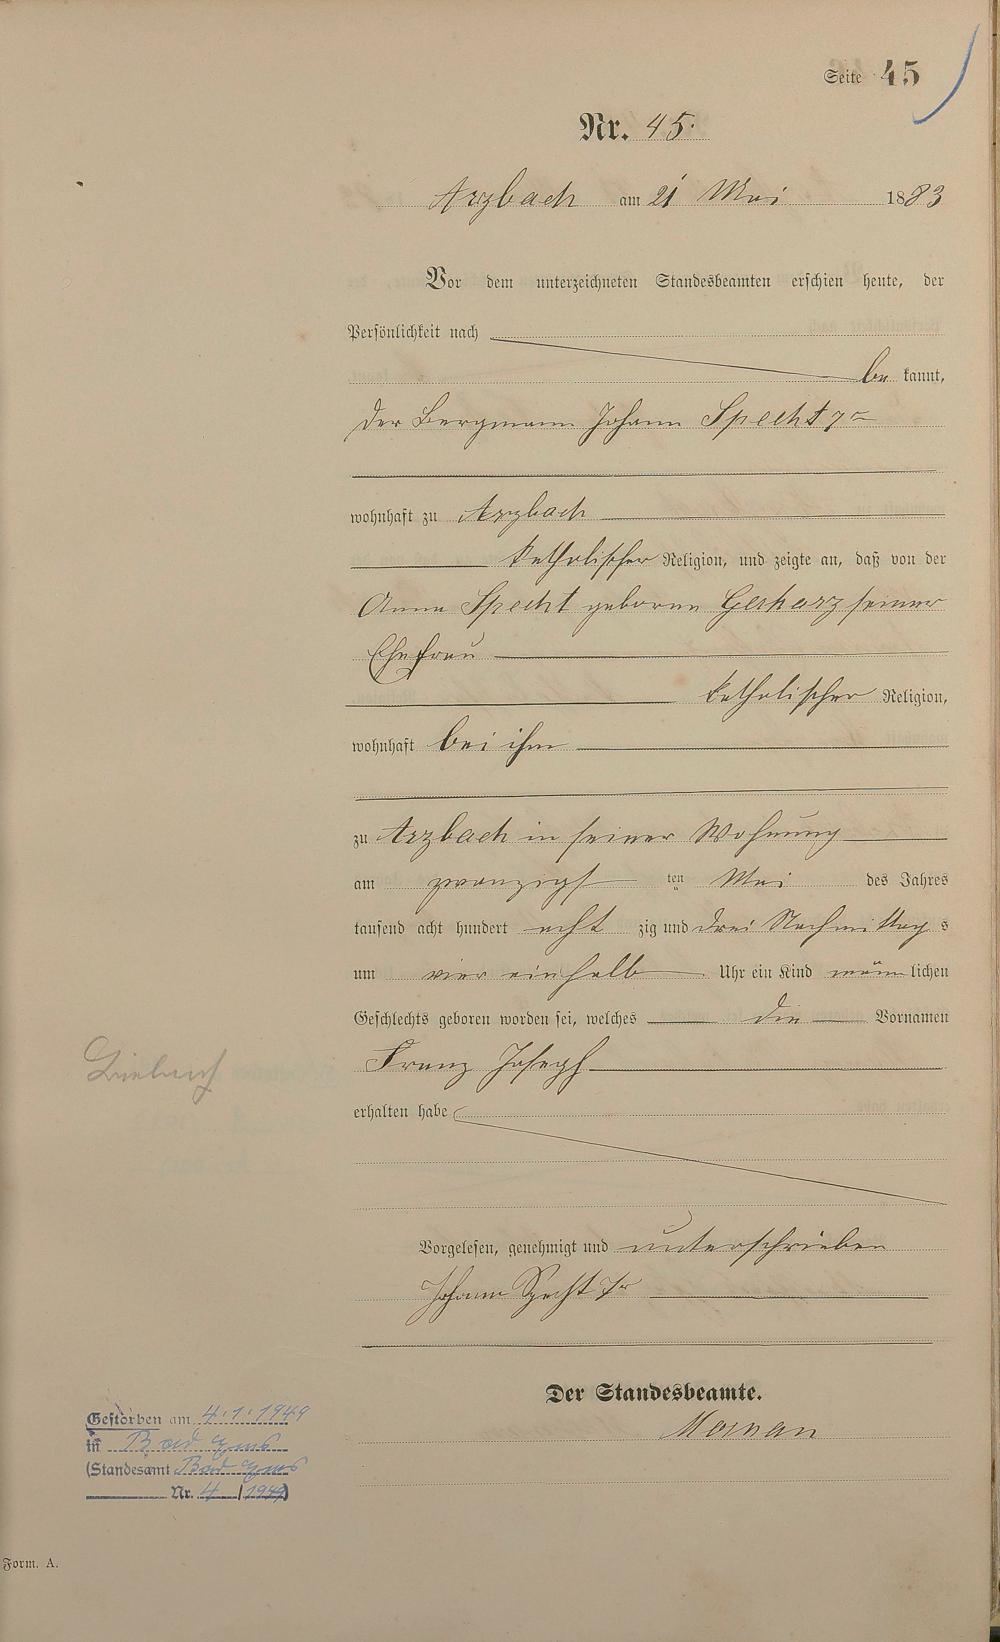 Seite 45
Nr. 45.
Arzbach am 21 Mai 1883
Vor dem unterzeichneten Standesbeamten erschien heute, der
Persönlichkeit nach
be kannt,
der Bergmann Johann Specht 7r
wohnhaft zu Arzbach
katholischer Religion, und zeigte an, daß von der
Anna Specht geborne Gerharz seiner
Ehefrau
katholischer Religion,
wohnhaft bei ihm
zu Arzbach in seiner Wohnung
am zwanzigs ten Mai des Jahres
tausend acht hundert acht zig und drei Nachmittag s
um vier einhalb Uhr ein Kind männ lichen
Geschlechts geboren worden sei, welches die Vornamen
Franz Joseph
erhalten habe
Vorgelesen, genehmigt und unterschrieben
Johann Specht 7r
Der Standesbeamte.
Gestorben am 4.1.1949
in Bad Ems
(Standesamt Bad Ems
Nr. 4 / 1949)
Form. A.